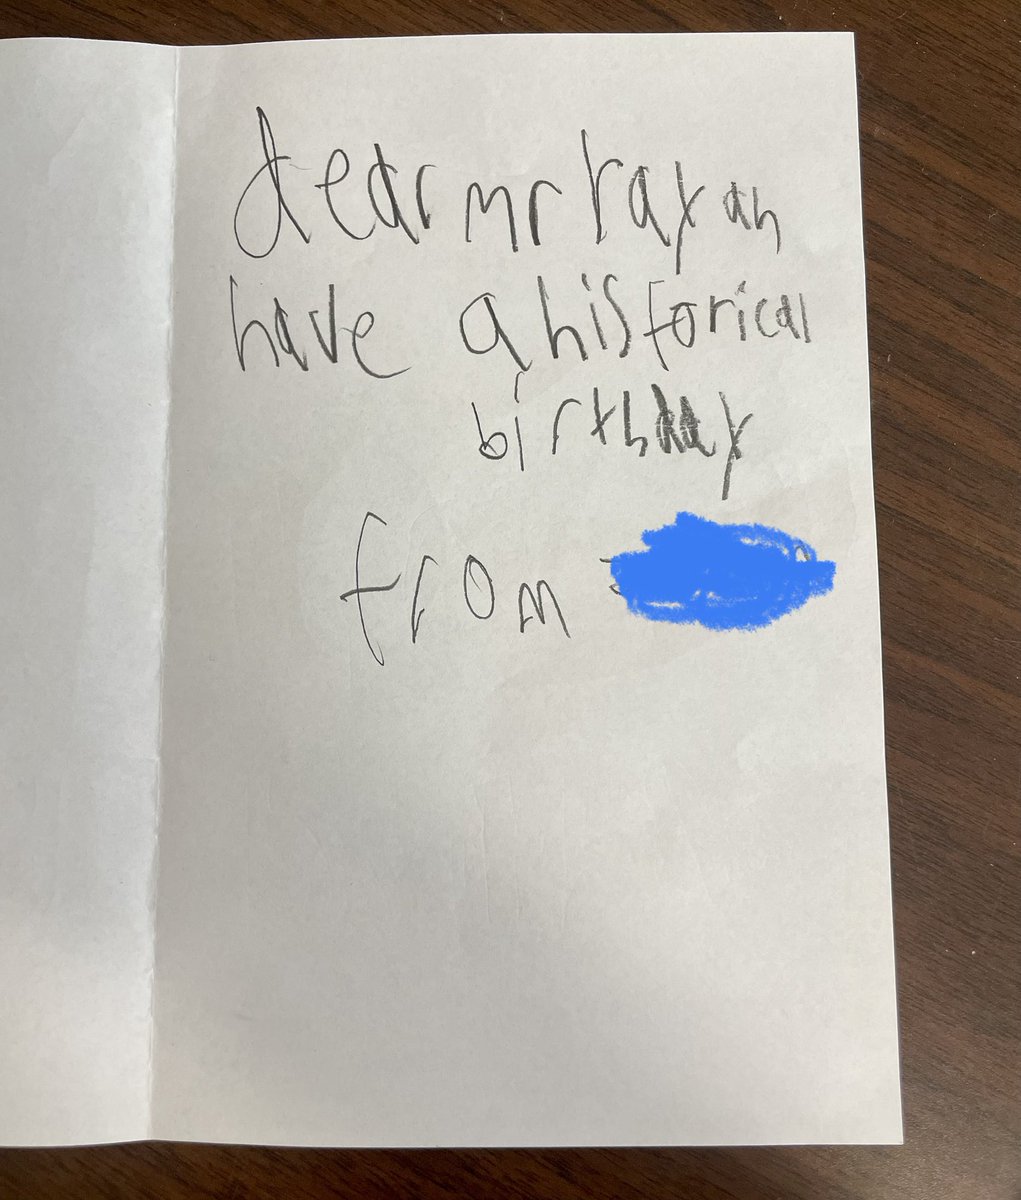 dear mr rayan
have a historical
birthday
from